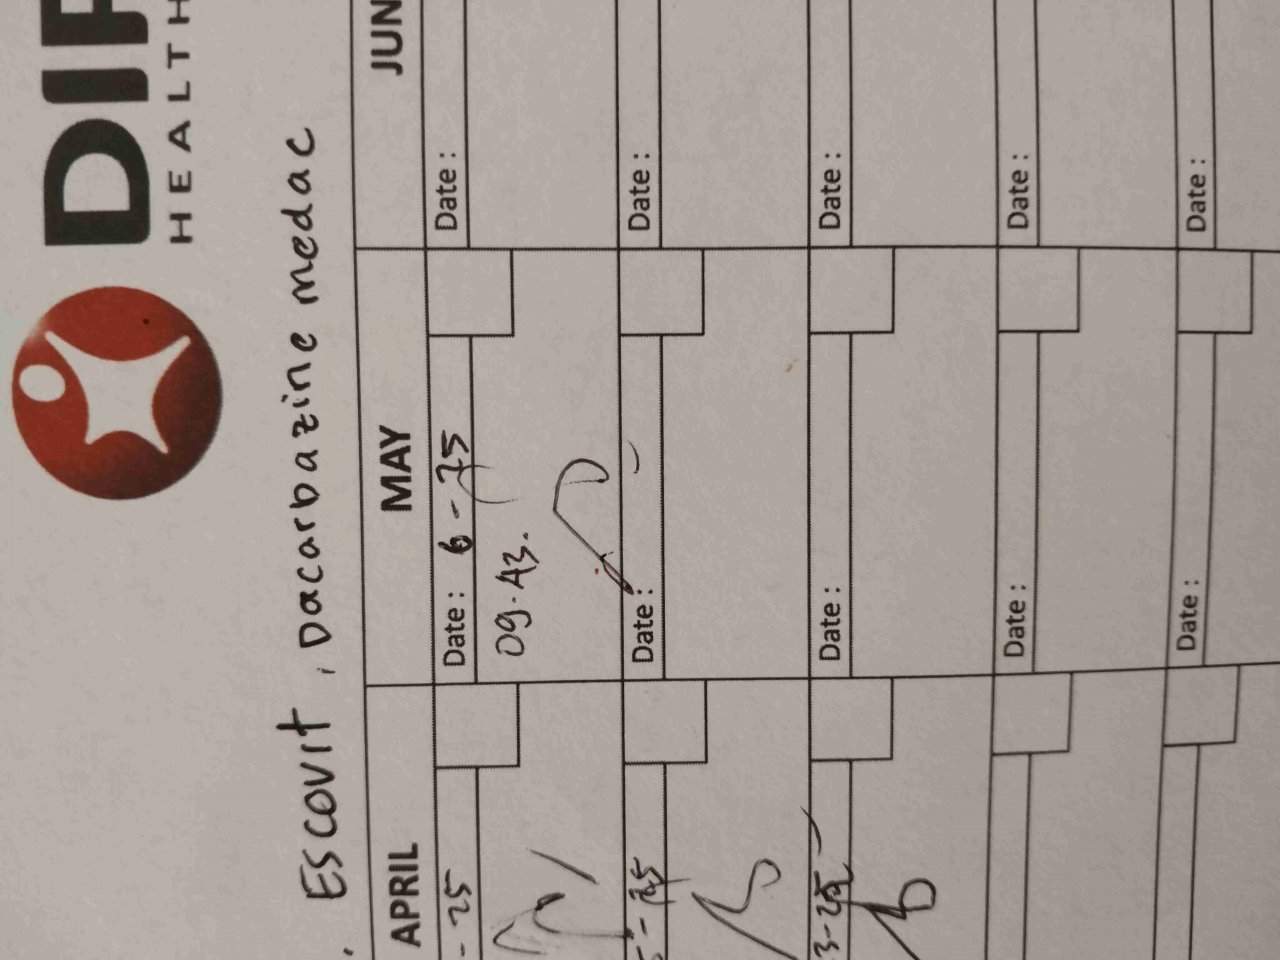 DIP
HEALTH
Escovit, Dacarbazine medac
APRIL MAY JUN
- 25 Date : 6 - 25 Date :
09.43.
- 25 Date : Date :
3-25 Date : Date :
Date : Date :
Date : Date :